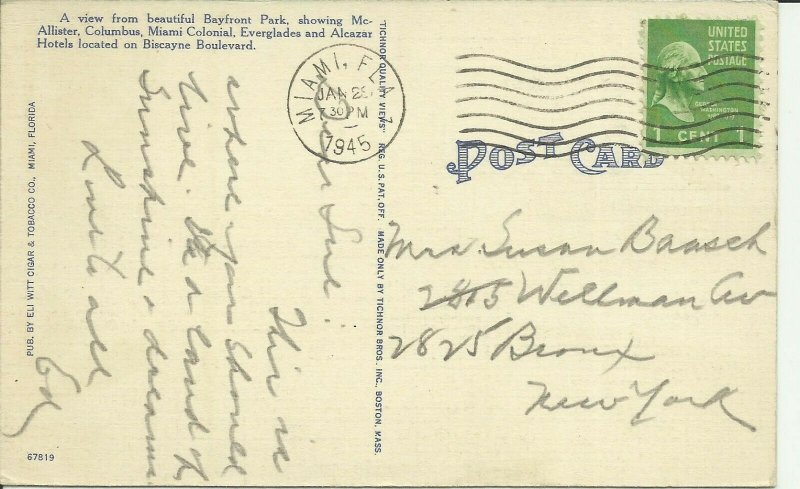 A view from beautiful Bayfront Park, showing Mc-
Allister, Columbus, Miami Colonial, Everglades and Alcazar
Hotels located on Biscayne Boulevard.
PUB. BY ELI WITT CIGAR & TOBACCO CO., MIAMI, FLORIDA
67819
"TICHNOR QUALITY VIEWS" REG. U.S. PAT. OFF. MADE ONLY BY TICHNOR BROS. INC., BOSTON, MASS.
MIAMI, FLA.
JAN 28
730PM
1945
UNITED
STATES
POSTAGE
GEORGE
WASHINGTON
1 CENT 1
POST CARD
Dear Sue:
This is
where you should
live. It's a land of
Sunshine & dreams
Love to all
Ed
Mrs. Susan Baasch
2815 Wellman Av
2825 Bronx
New York